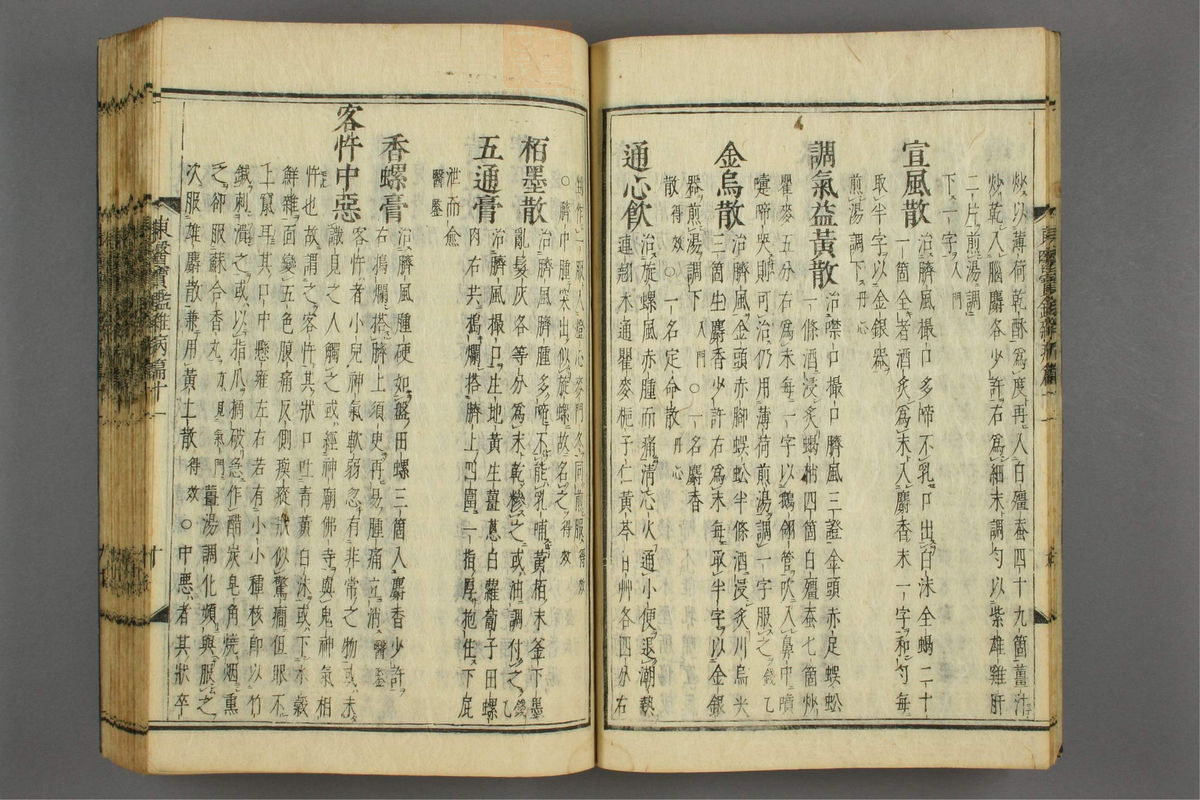 炒以薄荷乾酥爲度再入白殭蚕四十九箇薑汁
炒乾入腦麝各少許右爲細末調勻以紫雄雞肝
二片煎湯調
下一字入門
宣風散
治臍風撮口多啼不乳口出白沫全蝎二十
一箇全者酒炙爲末入麝香末一字和勻每
取半字以金銀器
煎湯調下丹心
調氣益黃散
治噤口撮口臍風三證金頭赤足蜈蚣
一條酒浸炙蝎梢四箇白殭蚕七箇炒
瞿麥五分右爲末每一字以鵝翎管吹入鼻中噴
嚏啼哭則可治仍用薄荷煎湯調一字服之錢乙
金烏散
治臍風金頭赤脚蜈蚣半條酒浸炙川烏尖
三箇生麝香少許右爲末每取半字以金銀
器煎湯調下入門○一名麝香
散得效○一名定命散丹心
通心飮
治旋螺風赤腫而痛淸心火通小便退潮熱
連翹木通瞿麥梔子仁黃芩甘艸各四分右
剉作一服入燈心麥門冬同煎服得效
○臍中腫突出似旋螺故名之得效
栢墨散
治臍風臍腫多啼不能乳哺黃栢末釜下墨
亂髮灰各等分爲末乾摻之或油調付之錢乙
五通膏
治臍風撮口生地黃生薑葱白蘿葍子田螺
肉右共搗爛搭臍上四圍一指厚抱住下屁
泄而愈
醫鑒
香螺膏
治臍風腫硬如盤田螺三箇入麝香少許
右搗爛搭臍上須臾再易腫痛立消醫鑒
客忤中惡
客忤者小兒神氣軟弱忽有非常之物或未
識見之人觸之或經神廟佛寺與鬼神氣相
忤也故謂之客忤其狀口吐靑黃白沫或下水穀
鮮雜面變五色腹痛反側瘈瘲狀似驚癎但眼不
上竄耳其口中懸雍左右若有小小種核卽以竹
鍼刺潰之或以指爪摘破急作醋炭皂角燒烟熏
之却服蘇合香丸方見氣門薑湯調化頻與服之
次服雄麝散兼用黃土散得效○中惡者其狀卒
東醫寶鑑雜病篇十一